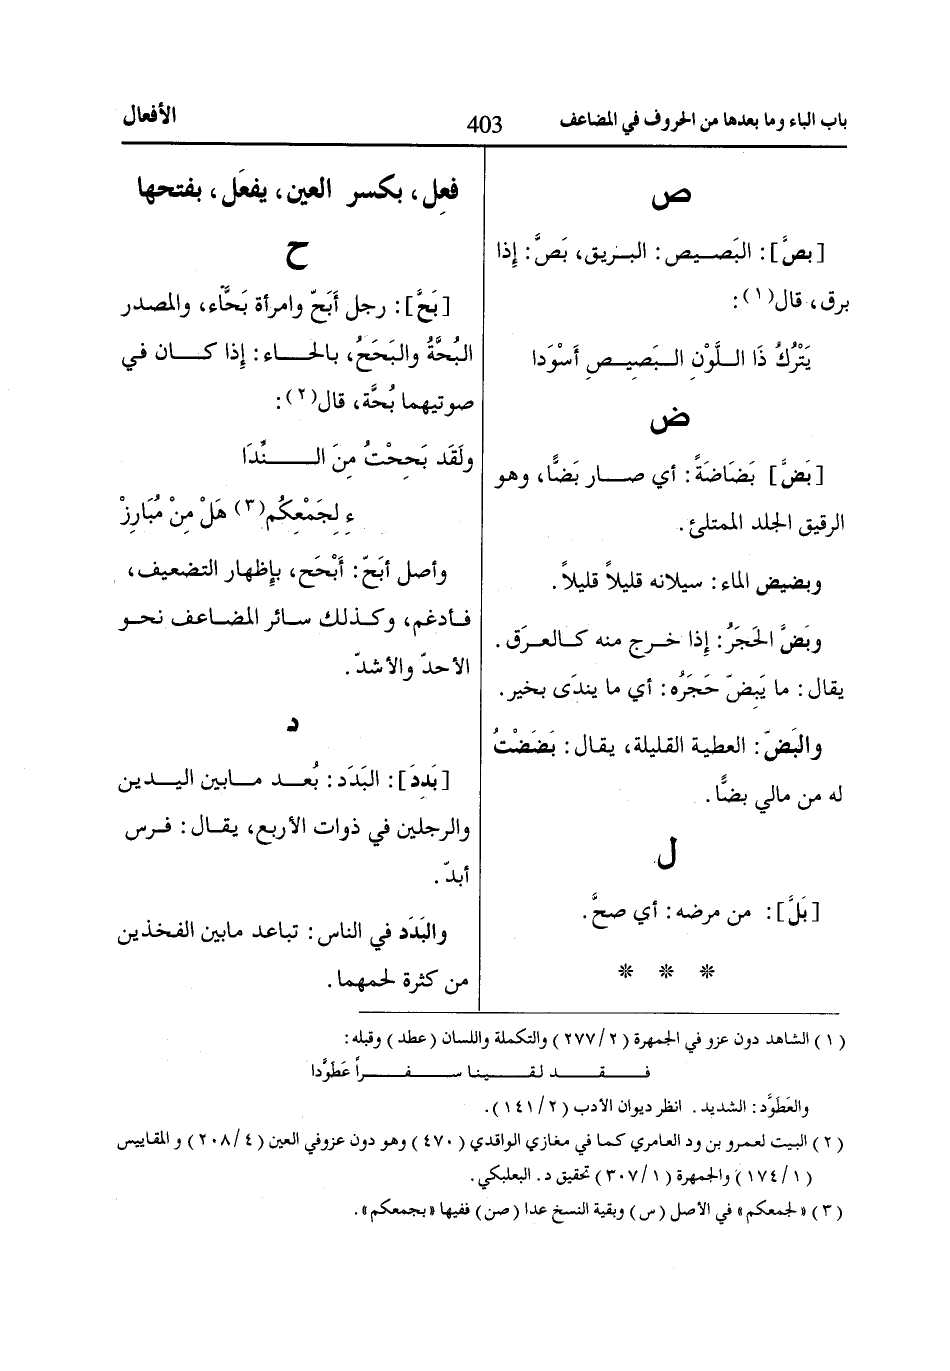 باب الباء وما بعدها من الحروف في المضاعف
403
الأفعال
ص
[بصَّ]: البَصِيص: البريق، بَصَّ: إذا
برق، قال(١):
يَتْرُكُ ذَا اللَّوْنِ البَصِيصِ أَسْوَدا
ض
[بَضَّ] بَضَاضَةً: أي صار بَضًّا، وهو
الرقيق الجلد الممتلئ.
وبضيض الماء: سيلانه قليلاً قليلاً.
وبَضَّ الحَجَرُ: إذا خرج منه كالعرَق.
يقال: ما يَبِضّ حَجَرُه: أي ما يندَى بخير.
والبَضّ: العطية القليلة، يقال: بَضَضْتُ
له من مالي بضًّا.
ل
[بَلَّ]: من مرضه: أي صحَّ.
* * *
فعِل، بكسر العين، يفعَل، بفتحها
ح
[بَحَّ]: رجل أَبَحّ وامرأة بَحَّاء، والمصدر
البُحَّةُ والبَحَحُ، بالحاء: إذا كان في
صوتيهما بُحَّة، قال(٢):
ولَقَد بَحِحْتُ مِنَ النِّدَا
ءِ لِجَمْعِكُم(٣) هَلْ مِنْ مُبَارِزْ
وأصل أبَحّ: أَبْحَح، بإظهار التضعيف،
فأدغم، وكذلك سائر المضاعف نحو
الأحدّ والأشدّ.
د
[بَدِدَ]: البَدَد: بُعد مابين اليدين
والرجلين في ذوات الأربع، يقال: فرس
أبدّ.
والبَدَد في الناس: تباعد مابين الفخذين
من كثرة لحمهما.
(١) الشاهد دون عزو في الجمهرة (٢٧٧/٢) والتكملة واللسان (عطد) وقبله:
فقد لقينا سفراً عَطَوَّدا
والعَطَوَّد: الشديد. انظر ديوان الأدب (١٤١/٢).
(٢) البيت لعمرو بن ود العامري كما في مغازي الواقدي (٤٧٠) وهو دون عزوفي العين (٢٠٨/٤) و المقاييس
(١٧٤/١) والجمهرة (٣٠٧/١) تحقيق د. البعلبكي.
(٣) «لجمعكم» في الأصل (س) وبقية النسخ عدا (صن) ففيها «بجمعكم».